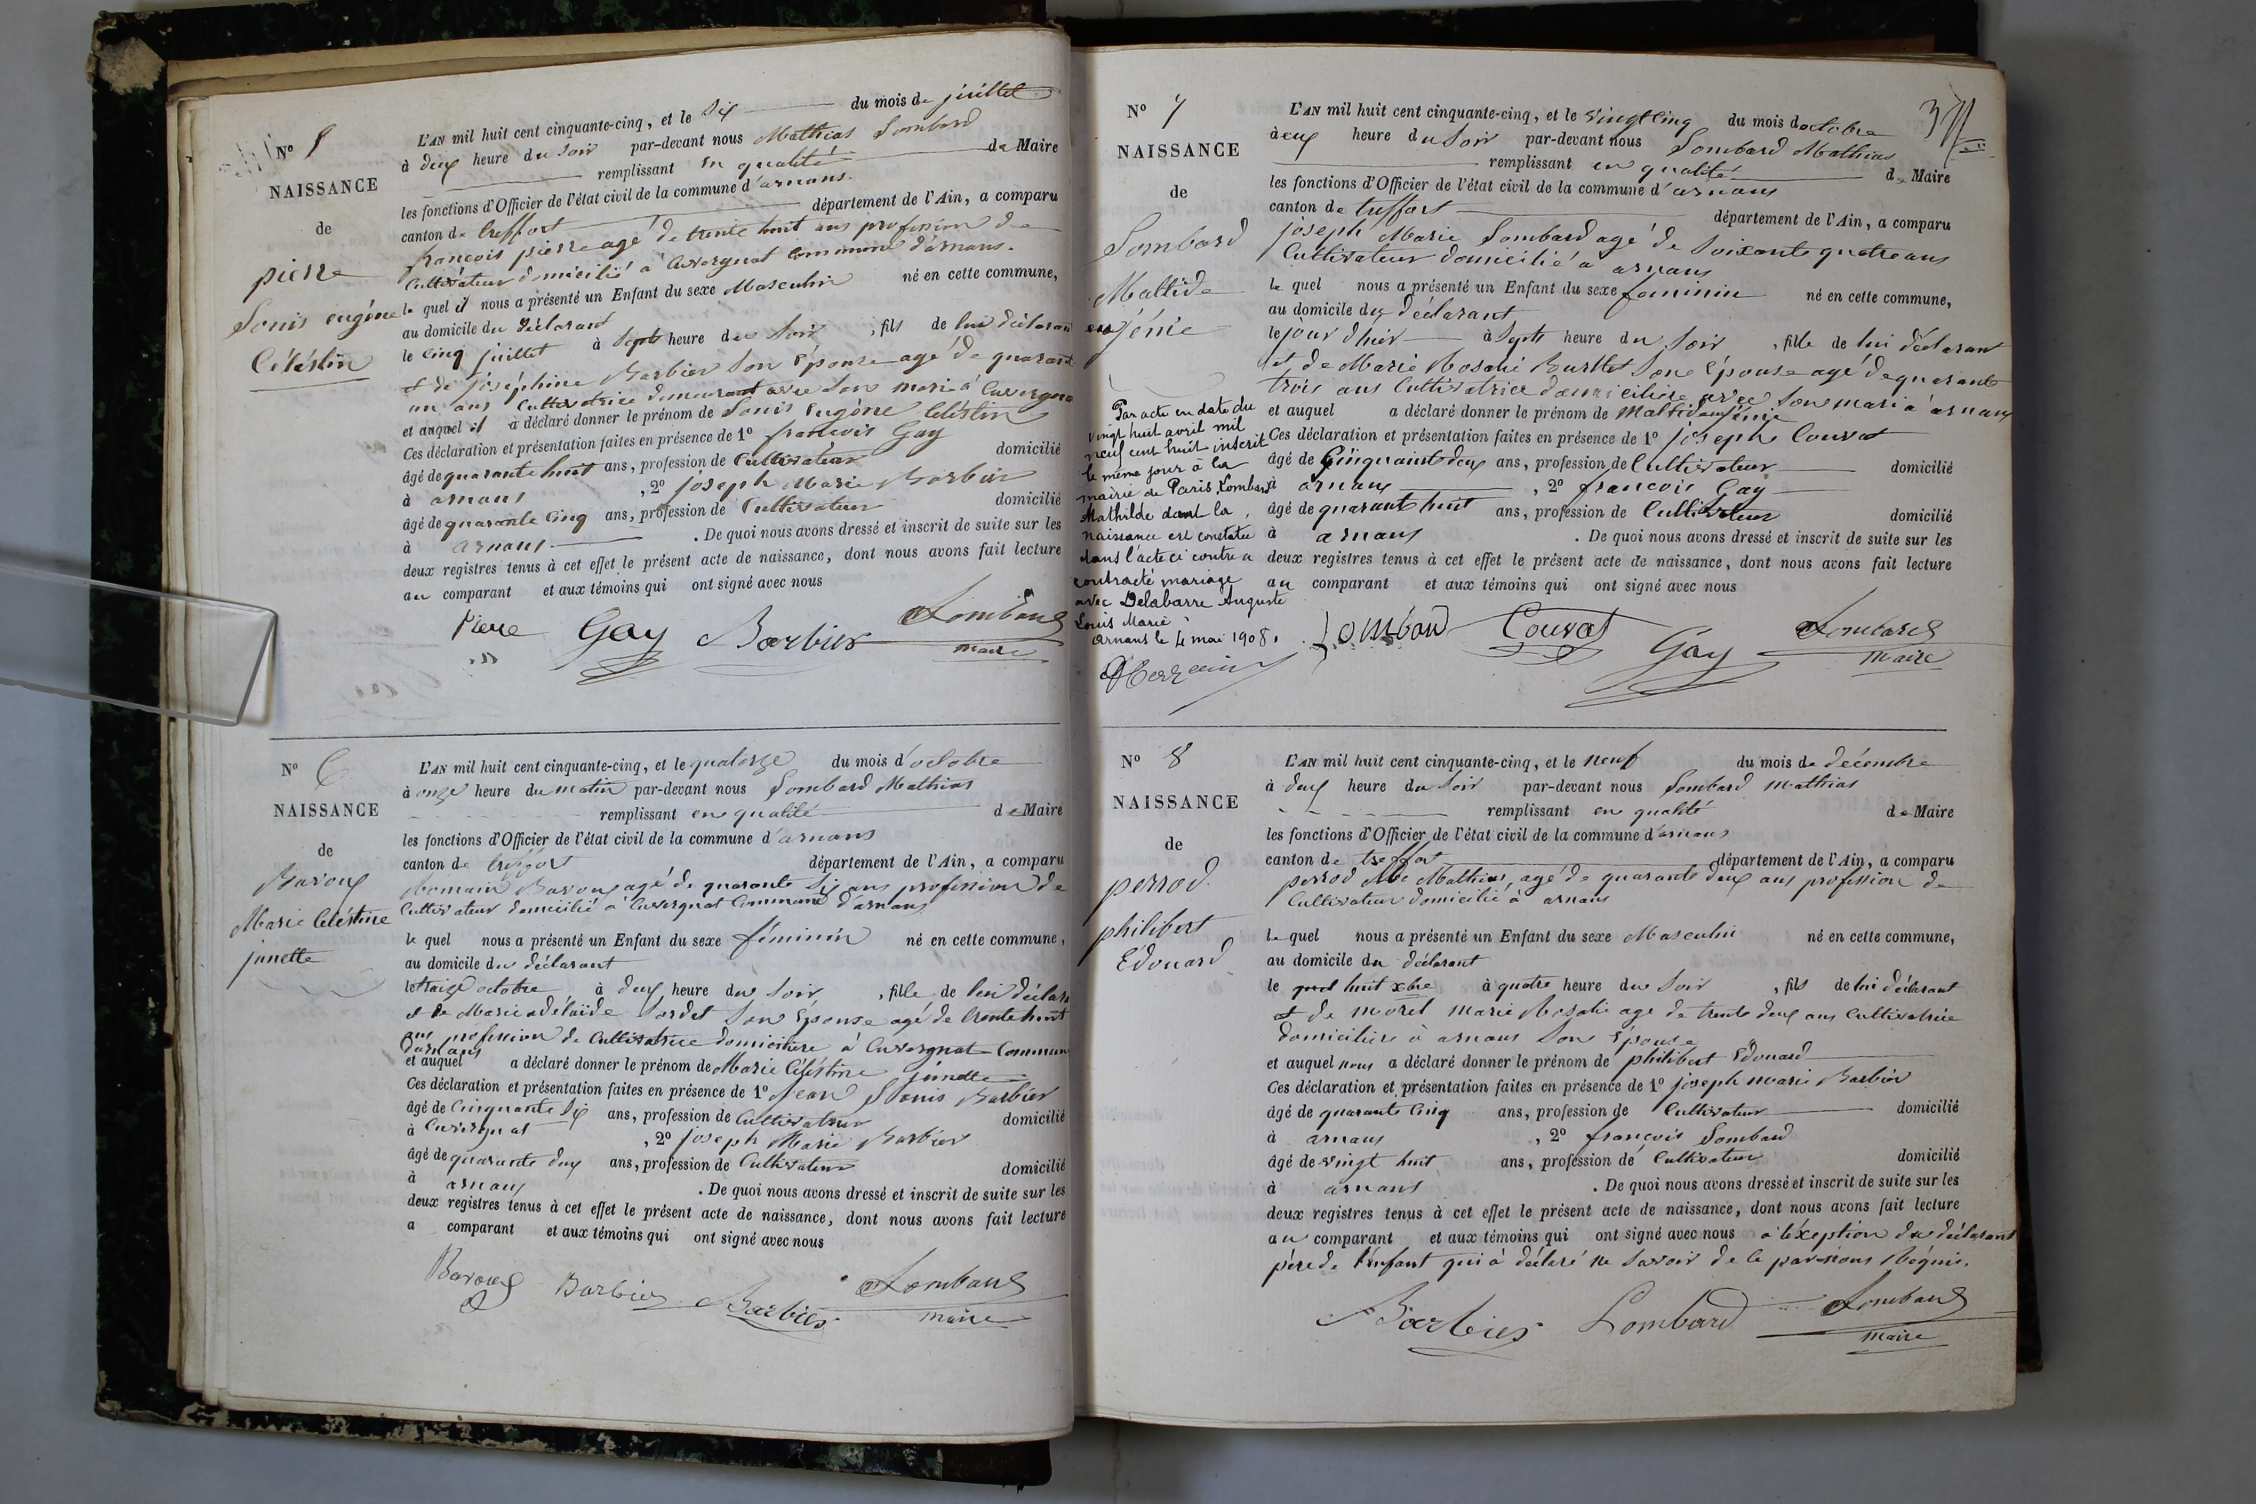 N° 5
NAISSANCE
de
pierre
Louis eugène
Céléstin
L'AN mil huit cent cinquante-cinq, et le six du mois de juillet
à deux heure du soir par-devant nous Mathias Lombard
remplissant en qualité de Maire
les fonctions d'Officier de l'état civil de la commune d'arnans.
canton de treffort département de l'Ain, a comparu
francois pierre agé de trente huit ans profession de
Cultivateur domicilié à Cuvergnat Commune d'arnans.
le quel il nous a présenté un Enfant du sexe Masculin né en cette commune,
au domicile du déclarant
le cinq juillet à Septs heure du Soir, fils de lui déclarant
et de joséphine Barbier Son épouse agé de quarante
un ans Cultivatrice demeurant avec Son mari à Cuvergnat
et auquel il a déclaré donner le prénom de Louis Eugène Céléstin
Ces déclaration et présentation faites en présence de 1° francois Gay
âgé de quarante huit ans, profession de Cultivateur domicilié
à arnans, 2° joseph Marie Barbier
âgé de quarante Cinq ans, profession de Cultivateur domicilié
à arnans. De quoi nous avons dressé et inscrit de suite sur les
deux registres tenus à cet effet le présent acte de naissance, dont nous avons fait lecture
au comparant et aux témoins qui ont signé avec nous
Pierre Gay Barbier Lombard
maire
N° 6
NAISSANCE
de
Baroux
Marie Céléstine
jinette
L'AN mil huit cent cinquante-cinq, et le quatorze du mois d'octobre
à onze heure du matin par-devant nous Lombard Mathias
remplissant en qualité de Maire
les fonctions d'Officier de l'état civil de la commune d'arnans
canton de treffort département de l'Ain, a comparu
Romain Baroux agé de quarante Six ans profession de
Cultivateur domicilié à Cuvergnat Commune d'arnans
le quel nous a présenté un Enfant du sexe féminin né en cette commune,
au domicile du déclarant
le traize octobre à deux heure du Soir, fille de lui déclarant
et de Marie adélaïde Sordet Son Épouse agé de trente huit
ans profession de Cultivatrice domicilière à Cuvergnat Commune
d'arnans
et auquel a déclaré donner le prénom de Marie Céléstine jinette
Ces déclaration et présentation faites en présence de 1° Jean Louis Barbier
âgé de Cinquante Six ans, profession de Cultivateur domicilié
à Cuvergnat, 2° joseph Marie Barbier
âgé de quarante deux ans, profession de Cultivateur domicilié
à arnans. De quoi nous avons dressé et inscrit de suite sur les
deux registres tenus à cet effet le présent acte de naissance, dont nous avons fait lecture
a comparant et aux témoins qui ont signé avec nous
Baroux Barbier Barbier Lombard
maire
N° 7
NAISSANCE
de
Lombard
Maltide
eugénie
Par acte en date du
vingt huit avril mil
neuf cent huit inscrit
le même jour à la
mairie de Paris, Lombard
Mathilde dont la
naissance est constatée
dans l'acte ci contre a
contracté mariage
avec Delabarre Auguste
Louis Marie
Arnans le 4 mai 1908.
L'AN mil huit cent cinquante-cinq, et le vingt Cinq du mois d'octobre
à deux heure du Soir par-devant nous Lombard Mathias
remplissant en qualité de Maire
les fonctions d'Officier de l'état civil de la commune d'arnans
canton de treffort département de l'Ain, a comparu
joseph Marie Lombard agé de Soixante quatre ans
Cultivateur domicilié à arnans
le quel nous a présenté un Enfant du sexe féminin né en cette commune,
au domicile du déclarant
le jour d'hier à Septs heure du Soir, fille de lui déclarant
et de Marie Rosalie Burllet Son Épouse agé de quarante
trois ans Cultivatrice domicilière avec Son mari à arnans
et auquel a déclaré donner le prénom de Maltide eugénie
Ces déclaration et présentation faites en présence de 1° joseph Couvat
âgé de Cinquante deux ans, profession de Cultivateur domicilié
à arnans, 2° francois Gay
âgé de quarante huit ans, profession de Cultivateur domicilié
à arnans. De quoi nous avons dressé et inscrit de suite sur les
deux registres tenus à cet effet le présent acte de naissance, dont nous avons fait lecture
au comparant et aux témoins qui ont signé avec nous
Lombard Couvat Gay Lombard
Maire
N° 8
NAISSANCE
de
perrod
philibert
Édouard
L'AN mil huit cent cinquante-cinq, et le neuf du mois de décembre
à deux heure du Soir par-devant nous Lombard Mathias
remplissant en qualité de Maire
les fonctions d'Officier de l'état civil de la commune d'arnans
canton de treffort département de l'Ain, a comparu
perrod Mathias, agé de quarante deux ans profession de
Cultivateur domicilié à arnans
le quel nous a présenté un Enfant du sexe Masculin né en cette commune,
au domicile du déclarant
le huit xbre à quatre heure du Soir, fils de lui déclarant
et de morel marie Rosalie age de trente deux ans Cultivatrice
domicilière à arnans Son Épouse
et auquel nous a déclaré donner le prénom de philibert Édouard
Ces déclaration et présentation faites en présence de 1° joseph marie Barbier
âgé de quarante Cinq ans, profession de Cultivateur domicilié
à arnans, 2° francois Lombard
âgé de vingt huit ans, profession de Cultivateur domicilié
à arnans. De quoi nous avons dressé et inscrit de suite sur les
deux registres tenus à cet effet le présent acte de naissance, dont nous avons fait lecture
au comparant et aux témoins qui ont signé avec nous à léxeption du déclarant
père de l'énfant qui à déclaré ne Savoir de le par nous Réquis.
Barbier Lombard Lombard
maire